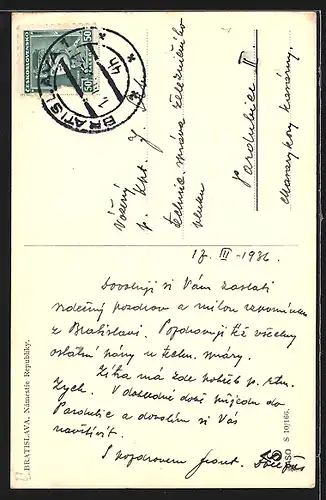 ČESKOSLOVENSKO
50
50
BRATISLAVA 1
Vážený
p. Kpt. J.
technic. správa železničního
pluku
Pardubice II.
Masarykovy kasárny.
17. III - 1936
Dovoluji si Vám zaslati
srdečný pozdrav a milou vzpomínku
z Bratislavi. Pozdravuji též všechny
ostatní pány u techn. správy.
Zítra má zde pohřeb p. rtm.
Zych. V dohledné době přijedu do
Pardubic a dovolím si Vás
navštívit.
S pozdravem Frant.
BRATISLAVA. Námestie Republiky.
GRAFO S 10|166.